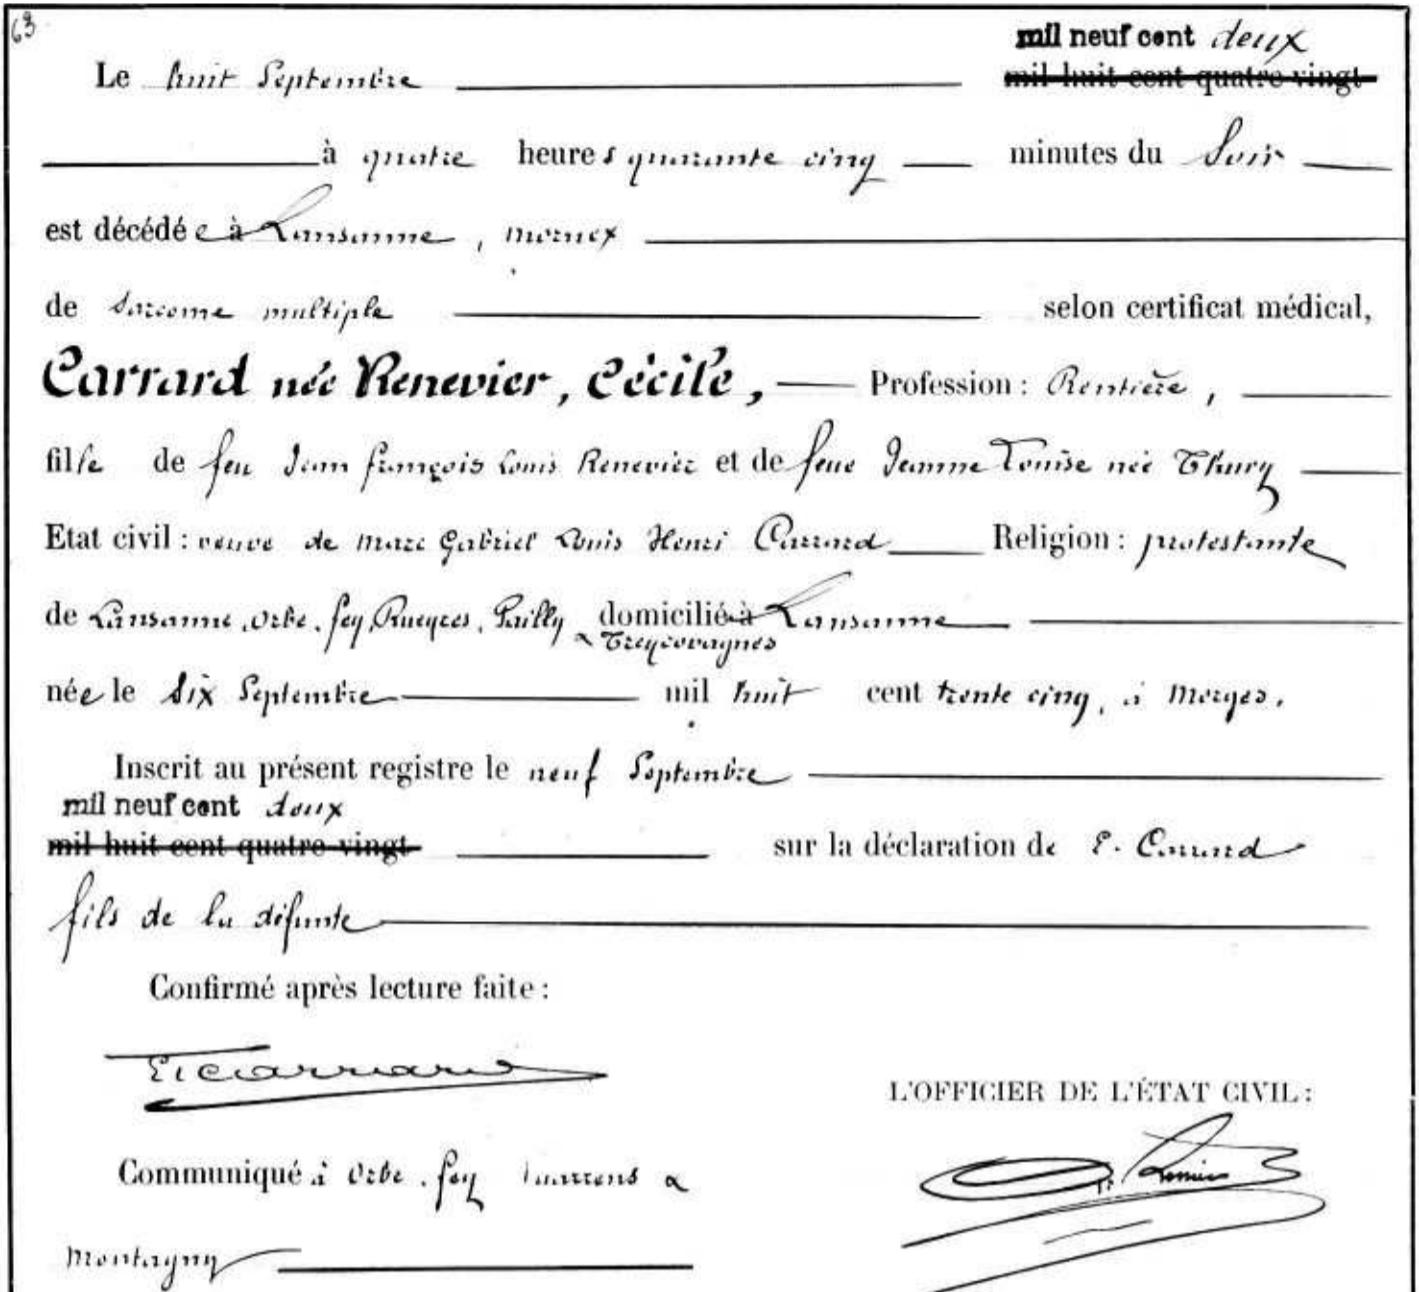 63
mil neuf cent deux
Le huit Septembre mil huit cent quatre vingt
à quatre heures quarante cinq minutes du Soir
est décédée à Lausanne, Mornex
de Sarcome multiple selon certificat médical,
Carrard née Renevier, Cécile, Profession : Rentière,
fille de feu Jean François Louis Renevier et de feue Jeanne Louise née Thury
Etat civil : veuve de Marc Gabriel Louis Henri Carrard Religion : protestante
de Lausanne, Orbe, Fey, Rueyres, Pailly, domicilié à Lausanne
& Treycovagnes
née le six Septembre mil huit cent trente cinq, à Morges.
Inscrit au présent registre le neuf Septembre
mil neuf cent deux
mil huit cent quatre vingt sur la déclaration de E. Carrard
fils de la défunte
Confirmé après lecture faite :
E. Carrard
L'OFFICIER DE L'ÉTAT CIVIL :
Communiqué à Orbe, Fey &
Montagny